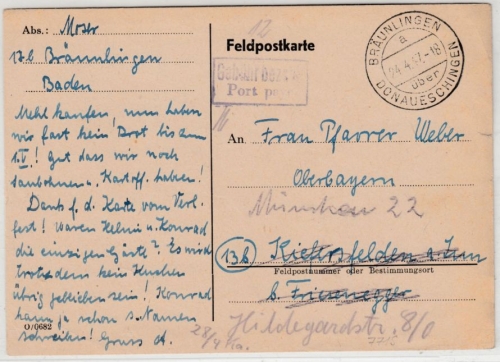 Abs.: Moser
17b Bräunlingen
Baden
Mehl kaufen, nun haben
wir fast kein Brot bis zum
1.V! gut dass wir noch
Saubohnen u. Kartoff. haben!
Dank f. d. Karte vom Verl.
fest! Waren Helmi u. Konrad
die einzigen Gäste? Es wird
trotzdem kein Kuchen
übrig geblieben sein! Konrad
kann ja schon s. Namen
schreiben! Gruss d.
O/0682
12
Feldpostkarte
Gebühr bezahlt
Port payé
BRÄUNLINGEN
a
24.4.47.-18
über
DONAUESCHINGEN
16
An Frau Pfarrer Weber
Oberbayern
München 22
13b Kiefersfelden a. Inn
Feldpostnummer oder Bestimmungsort
b. Friesenegger
Hildegardstr. 8/0
28/4